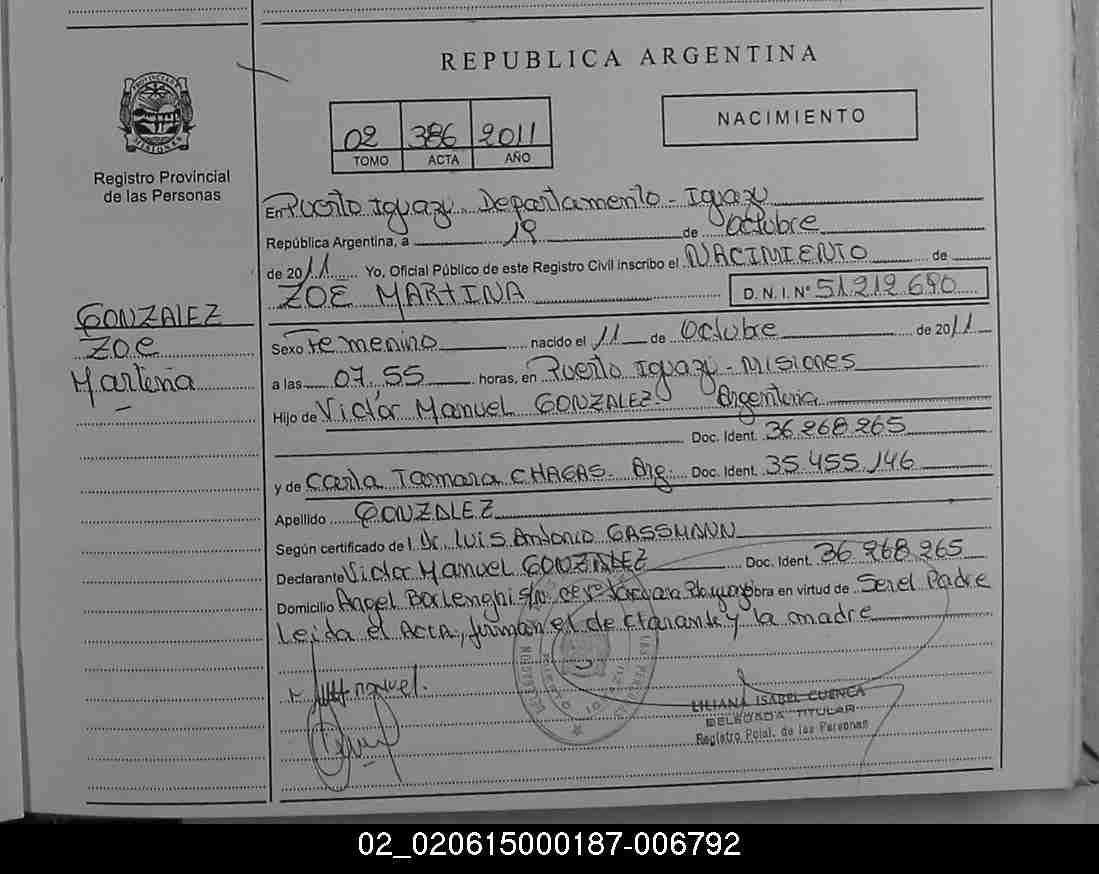 REPUBLICA ARGENTINA
PROVINCIA DE MISIONES
Registro Provincial
de las Personas
02 386 2011
TOMO ACTA AÑO
NACIMIENTO
En Puerto Iguazú. Departamento - Iguazú
República Argentina, a 19 de Octubre
de 2011 Yo, Oficial Público de este Registro Civil inscribo el NACIMIENTO de
ZOE MARTINA D.N.I. Nº 51.212.690
GONZALEZ
Zoe
Martina
Sexo Femenino nacido el 11 de Octubre de 2011
a las 07.55 horas, en Puerto Iguazú - Misiones
Hijo de Victor Manuel GONZALEZ Argentina
Doc. Ident. 36.268.265
y de Carla Tamara CHAGAS. Arg. Doc. Ident. 35.455.146
Apellido GONZALEZ
Según certificado de l Dr. Luis Antonio GASSMANN
Declarante Victor Manuel GONZALEZ Doc. Ident. 36.268.265
Domicilio Angel Borlenghi s/n. obra en virtud de Ser el Padre
Leida el Acta, firman el declarante y la madre
LILIANA ISABEL CUENCA
DELEGADA TITULAR
Registro Pcial. de las Personas
02_020615000187-006792